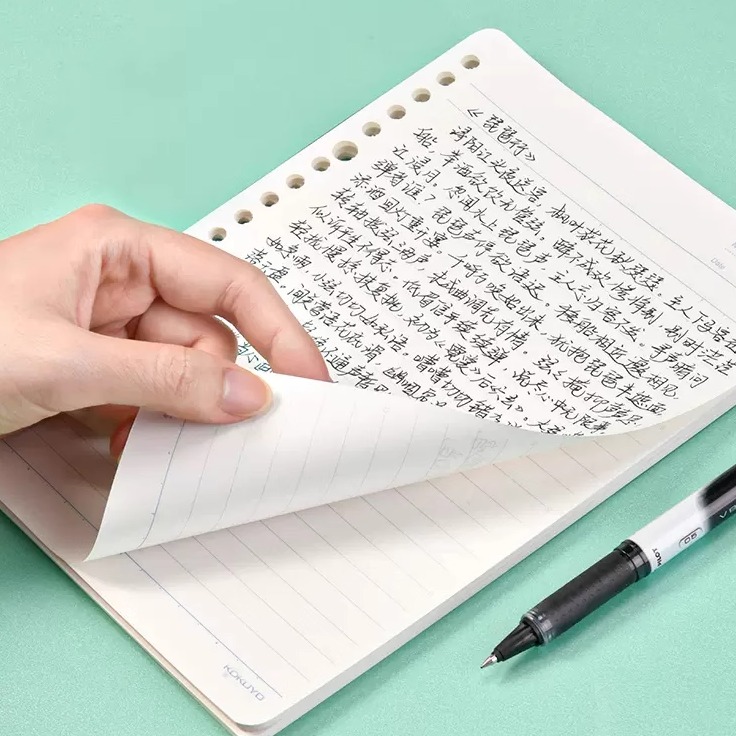 《琵琶行》
浔阳江头夜送客,枫叶荻花秋瑟瑟。主人下马客在
船,举酒欲饮无管弦。醉不成欢惨将别,别时茫茫
江浸月。忽闻水上琵琶声,主人忘归客不发。寻声暗问
弹者谁?琵琶声停欲语迟。移船相近邀相见,
添酒回灯重开宴。千呼万唤始出来,犹抱琵琶半遮面
转轴拨弦三两声,未成曲调先有情。弦弦掩抑声声思
似诉平生不得志。低眉信手续续弹,说尽心中无限事
轻拢慢捻抹复挑,初为《霓裳》后六幺。大弦
如急雨,小弦切切如私语。嘈嘈切切错杂弹
落玉盘。间关莺语花底滑,幽咽泉
不通声暂
Date
KOKUYO
PILOT